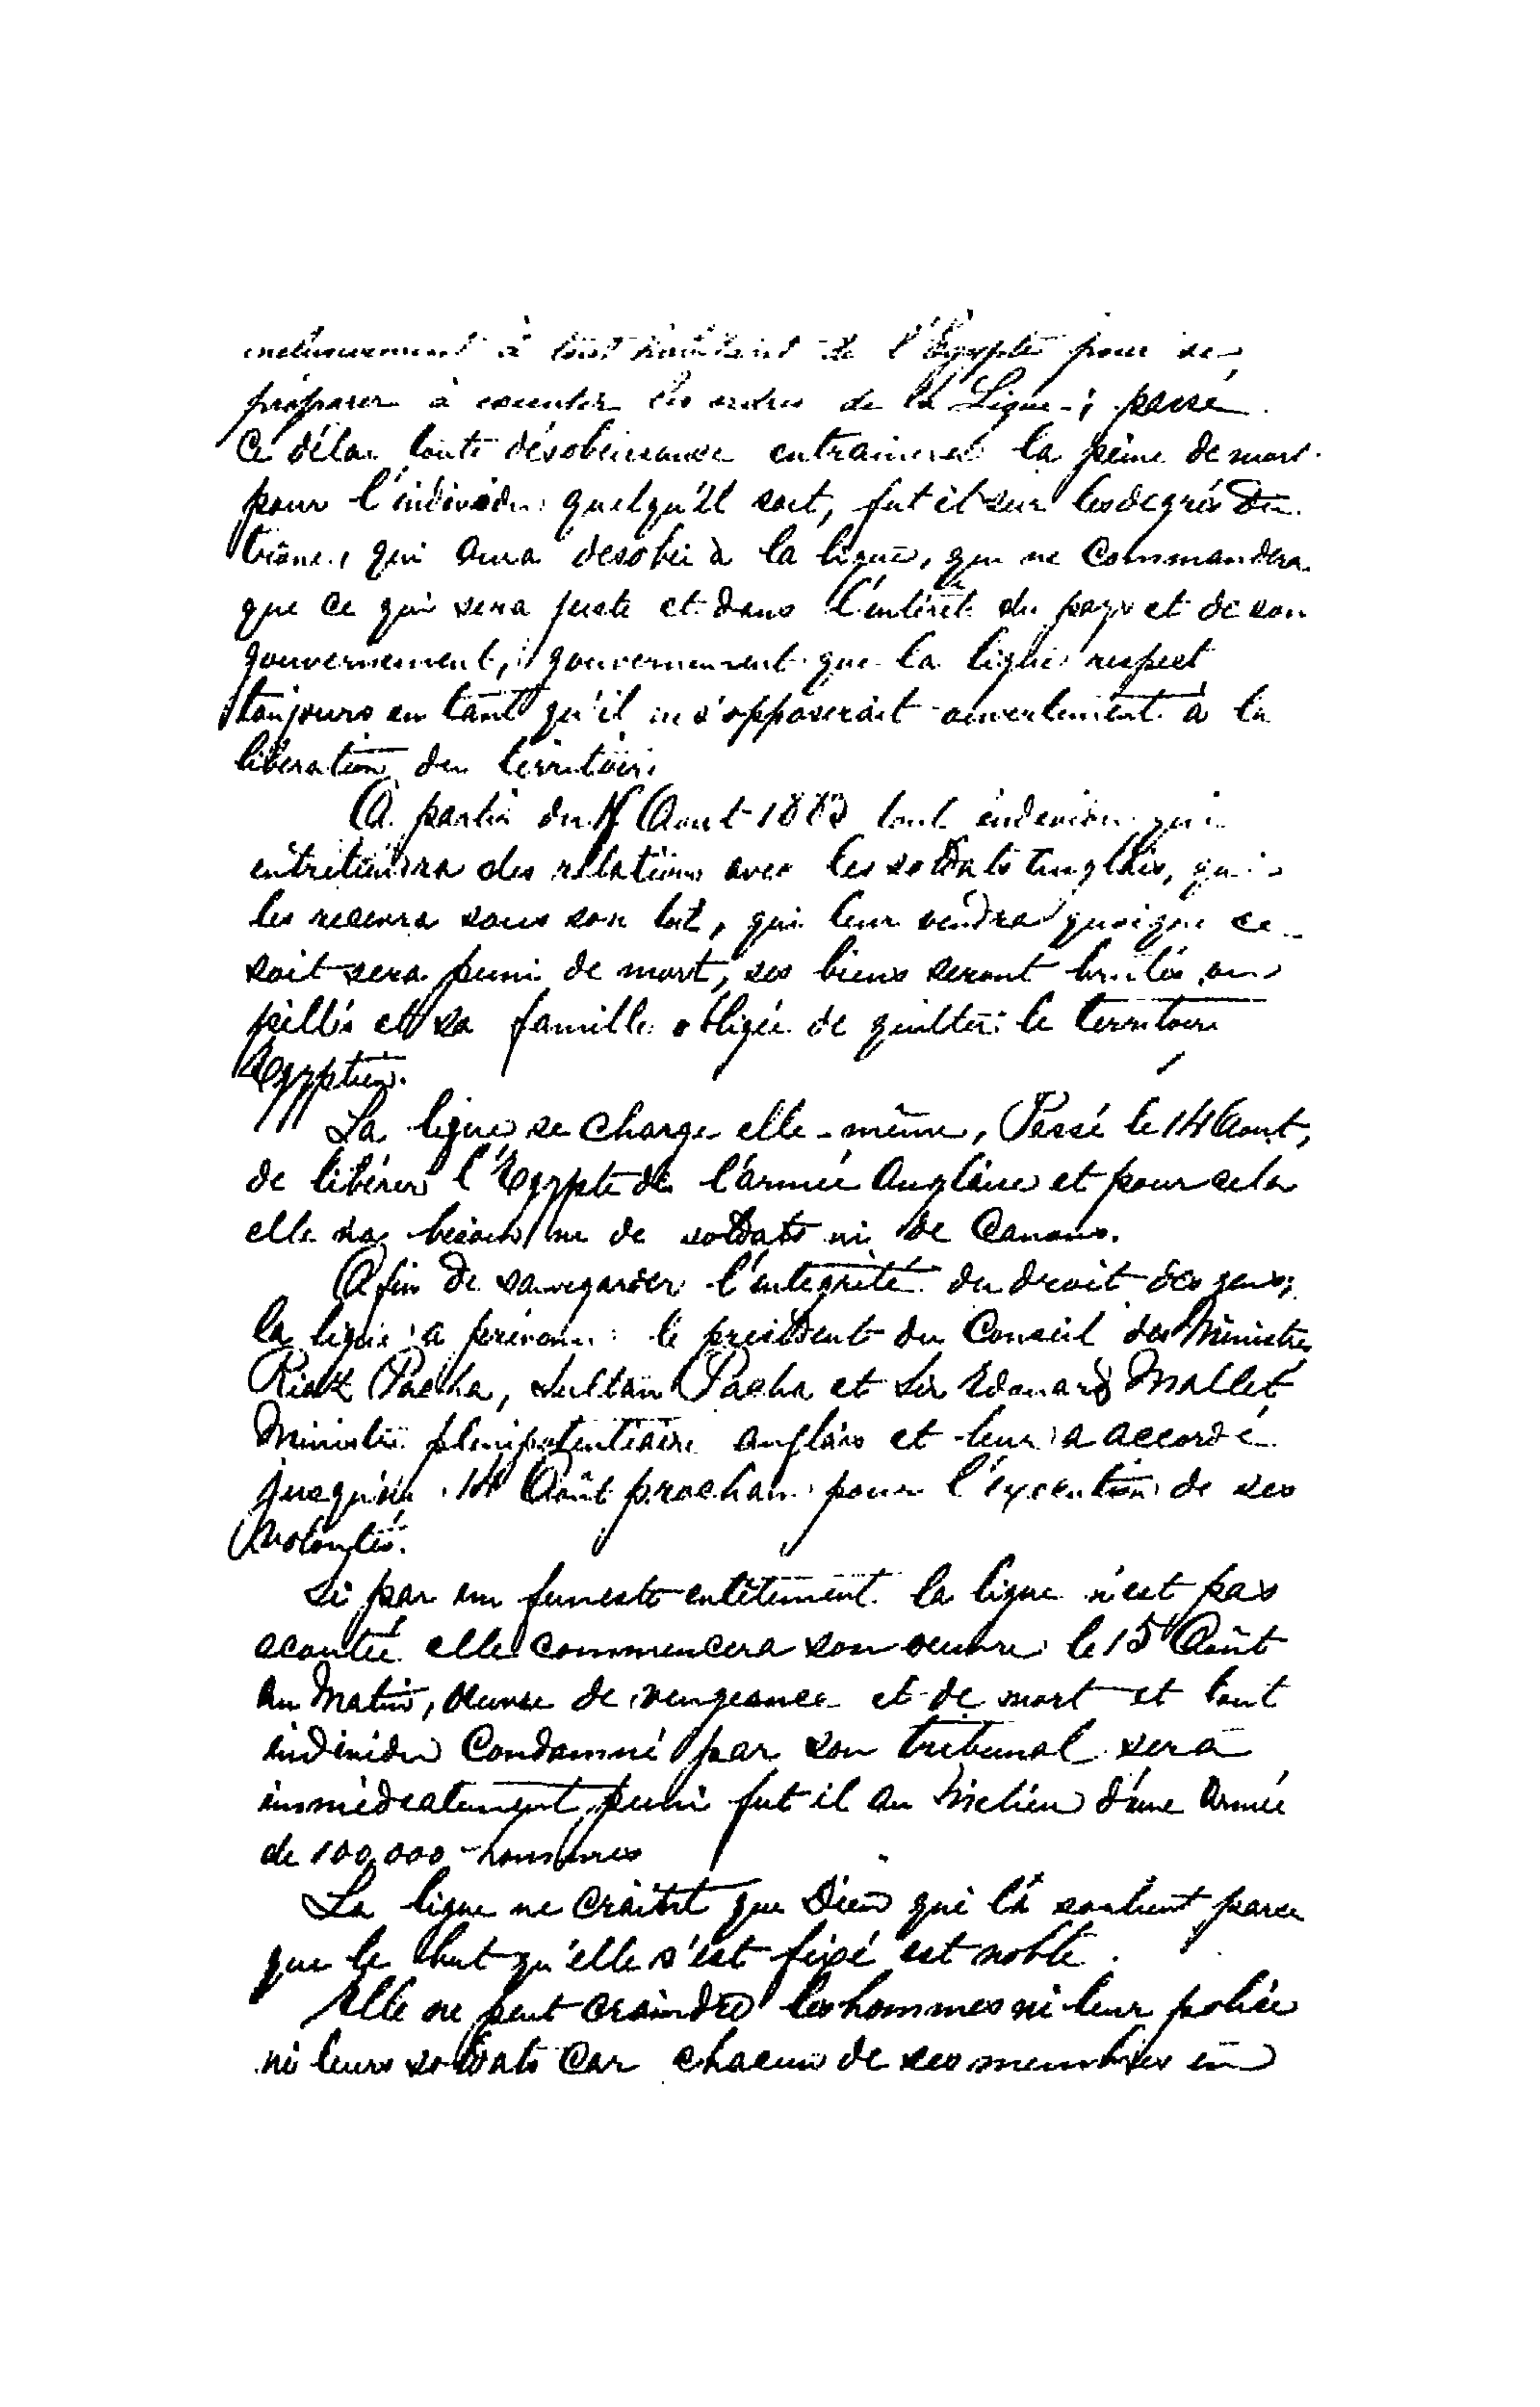 inclusivement à tout habitant de l'Egypte pour se
préparer à executer les ordres de la Ligue; passé
Ce délai toute désobeissance entrainera la peine de mort
pour l'individu quelqu'il soit, fut il sur les degrés du
trône, qui aura desobei à la ligue, qui ne Commandera
que ce qui sera juste et dans l'intérêt du pays et de son
gouvernement, gouvernement que la ligue respect
toujours en tant qu'il ne s'opposerait ouvertement à la
liberation du territoire
A partir du Aout 1883 tout individu qui
entretiendra des relations avec les soldats Anglais, qui
les recevra sous son toit, qui leur vendra quoique ce
soit sera puni de mort, ses biens seront brulés ou
pillés et sa famille obligée de quitter le territoire
Egyptien.
La ligue se charge elle-même, Passé le 14 Aout,
de libérer l'Egypte de l'armée Anglaise et pour cela
elle na besoin ni de soldats ni de Canons.
Afin de sauvegarder l'integrité du droit des gens,
la ligue a prévenu le président du Conseil des Ministres
Riaz Pacha, Sultan Pacha et Sir Edouard Mallet
Ministre plenipotentiaire anglais et leur a accordé
jusqu'au 14 Août prochain pour l'execution de ses
volontés.
Si par un funeste entêtement la ligue n'est pas
ecoutée elle commencera son oeuvre le 15 Août
au Matin, Oeuvre de vengeance et de mort et tout
individu Condamné par son tribunal sera
immédiatement puni fut il au milieu d'une Armée
de 100,000 hommes
La ligue ne craint que Dieu qui la soutient parce
que le but qu'elle s'est fixé est noble.
Elle ne peut craindre les hommes ni leur police
ni leurs soldats Car chacun de ses membres en